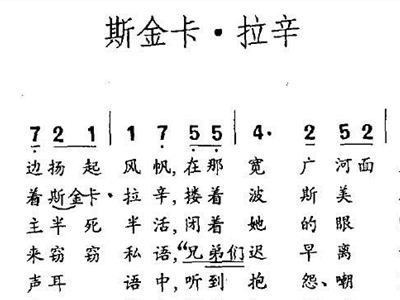 斯金卡·拉辛
7 2 1 | 1 7 5 5 | 4· 2 5 2 |
边扬起 风帆,在那 宽 广河面
着斯金卡·拉辛,搂着 波 斯美
主半死 半活,闭着 她 的眼
来窃窃 私语,“兄弟们 迟 早离
声耳 语中,听到 抱 怨、嘲